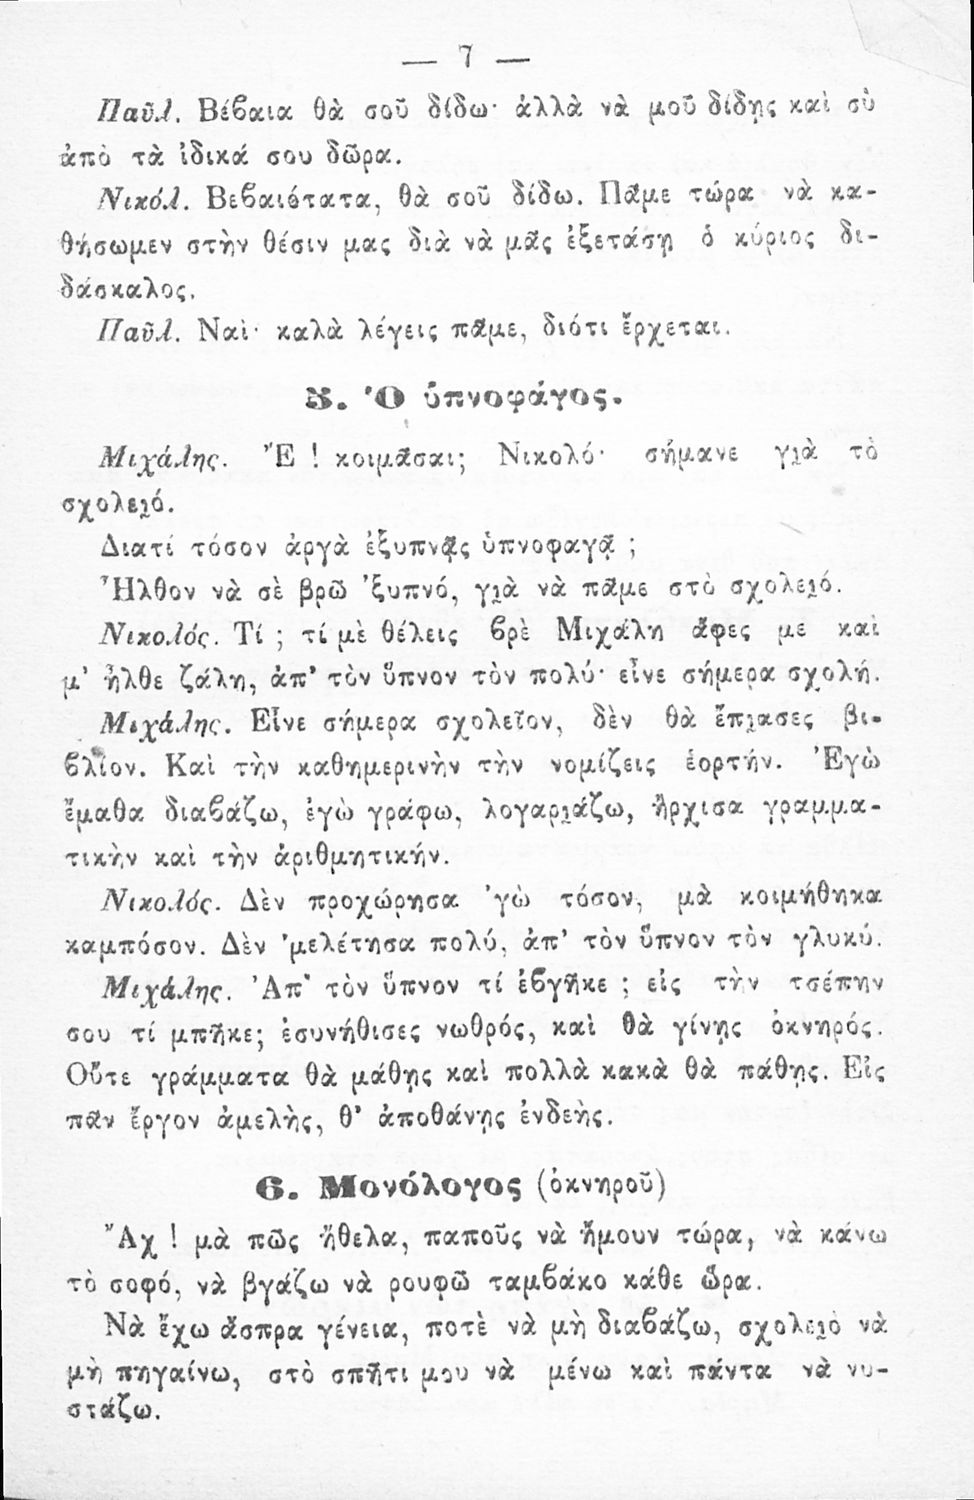 — 7 —
Παῦλ. Βέβαια θὰ σοῦ δίδω· ἀλλὰ νὰ μοῦ δίδῃς καὶ σὺ
ἀπὸ τὰ ἰδικά σου δῶρα.
Νικόλ. Βεβαιότατα, θὰ σοῦ δίδω. Πᾶμε τώρα νὰ κα-
θήσωμεν στὴν θέσιν μας διὰ νὰ μᾶς ἐξετάσῃ ὁ κύριος δι-
δάσκαλος.
Παῦλ. Ναὶ· καλὰ λέγεις πᾶμε, διότι ἔρχεται.
5. Ὁ ὑπνοφάγος.
Μιχάλης. Ἔ ! κοιμᾶσαι; Νικολό· σήμανε γι̯ὰ τὸ
σχολει̯ό.
Διατί τόσον ἀργὰ ἐξυπνᾷς ὑπνοφαγᾶ ;
Ἦλθον νὰ σὲ βρῶ ’ξυπνό, γι̯ὰ νὰ πᾶμε στὸ σχολει̯ό.
Νικολός. Τί ; τί μὲ θέλεις βρὲ Μιχάλη ἄφες με καὶ
μ’ ἦλθε ζάλη, ἀπ’ τὸν ὕπνον τὸν πολύ· εἶνε σήμερα σχολή.
Μιχάλης. Εἶνε σήμερα σχολεῖον, δὲν θὰ ἔπι̯ασες βι-
βλίον. Καὶ τὴν καθημερινὴν τὴν νομίζεις ἑορτήν. Ἐγὼ
ἔμαθα διαβάζω, ἐγὼ γράφω, λογαρι̯άζω, ἤρχισα γραμμα-
τικὴν καὶ τὴν ἀριθμητικήν.
Νικολός. Δὲν προχώρησα ’γὼ τόσον, μὰ κοιμήθηκα
καμπόσον. Δὲν ’μελέτησα πολύ, ἀπ’ τὸν ὕπνον τὸν γλυκύ.
Μιχάλης. Ἀπ’ τὸν ὕπνον τί ἐβγῆκε ; εἰς τὴν τσέπην
σου τί μπῆκε; ἐσυνήθισες νωθρός, καὶ θὰ γίνῃς ὀκνηρός.
Οὔτε γράμματα θὰ μάθῃς καὶ πολλὰ κακὰ θὰ πάθῃς. Εἰς
πᾶν ἔργον ἀμελὴς, θ’ ἀποθάνῃς ἐνδεὴς.
6. Μονόλογος (ὀκνηροῦ)
Ἄχ ! μὰ πῶς ἤθελα, παποῦς νὰ ἤμουν τώρα, νὰ κάνω
τὸ σοφό, νὰ βγάζω νὰ ρουφῶ ταμβάκο κάθε ὥρα.
Νὰ ἔχω ἄσπρα γένεια, ποτὲ νὰ μὴ διαβάζω, σχολει̯ὸ νὰ
μὴ πηγαίνω, στὸ σπῆτι μου νὰ μένω καὶ πάντα νὰ νυ-
στάζω.